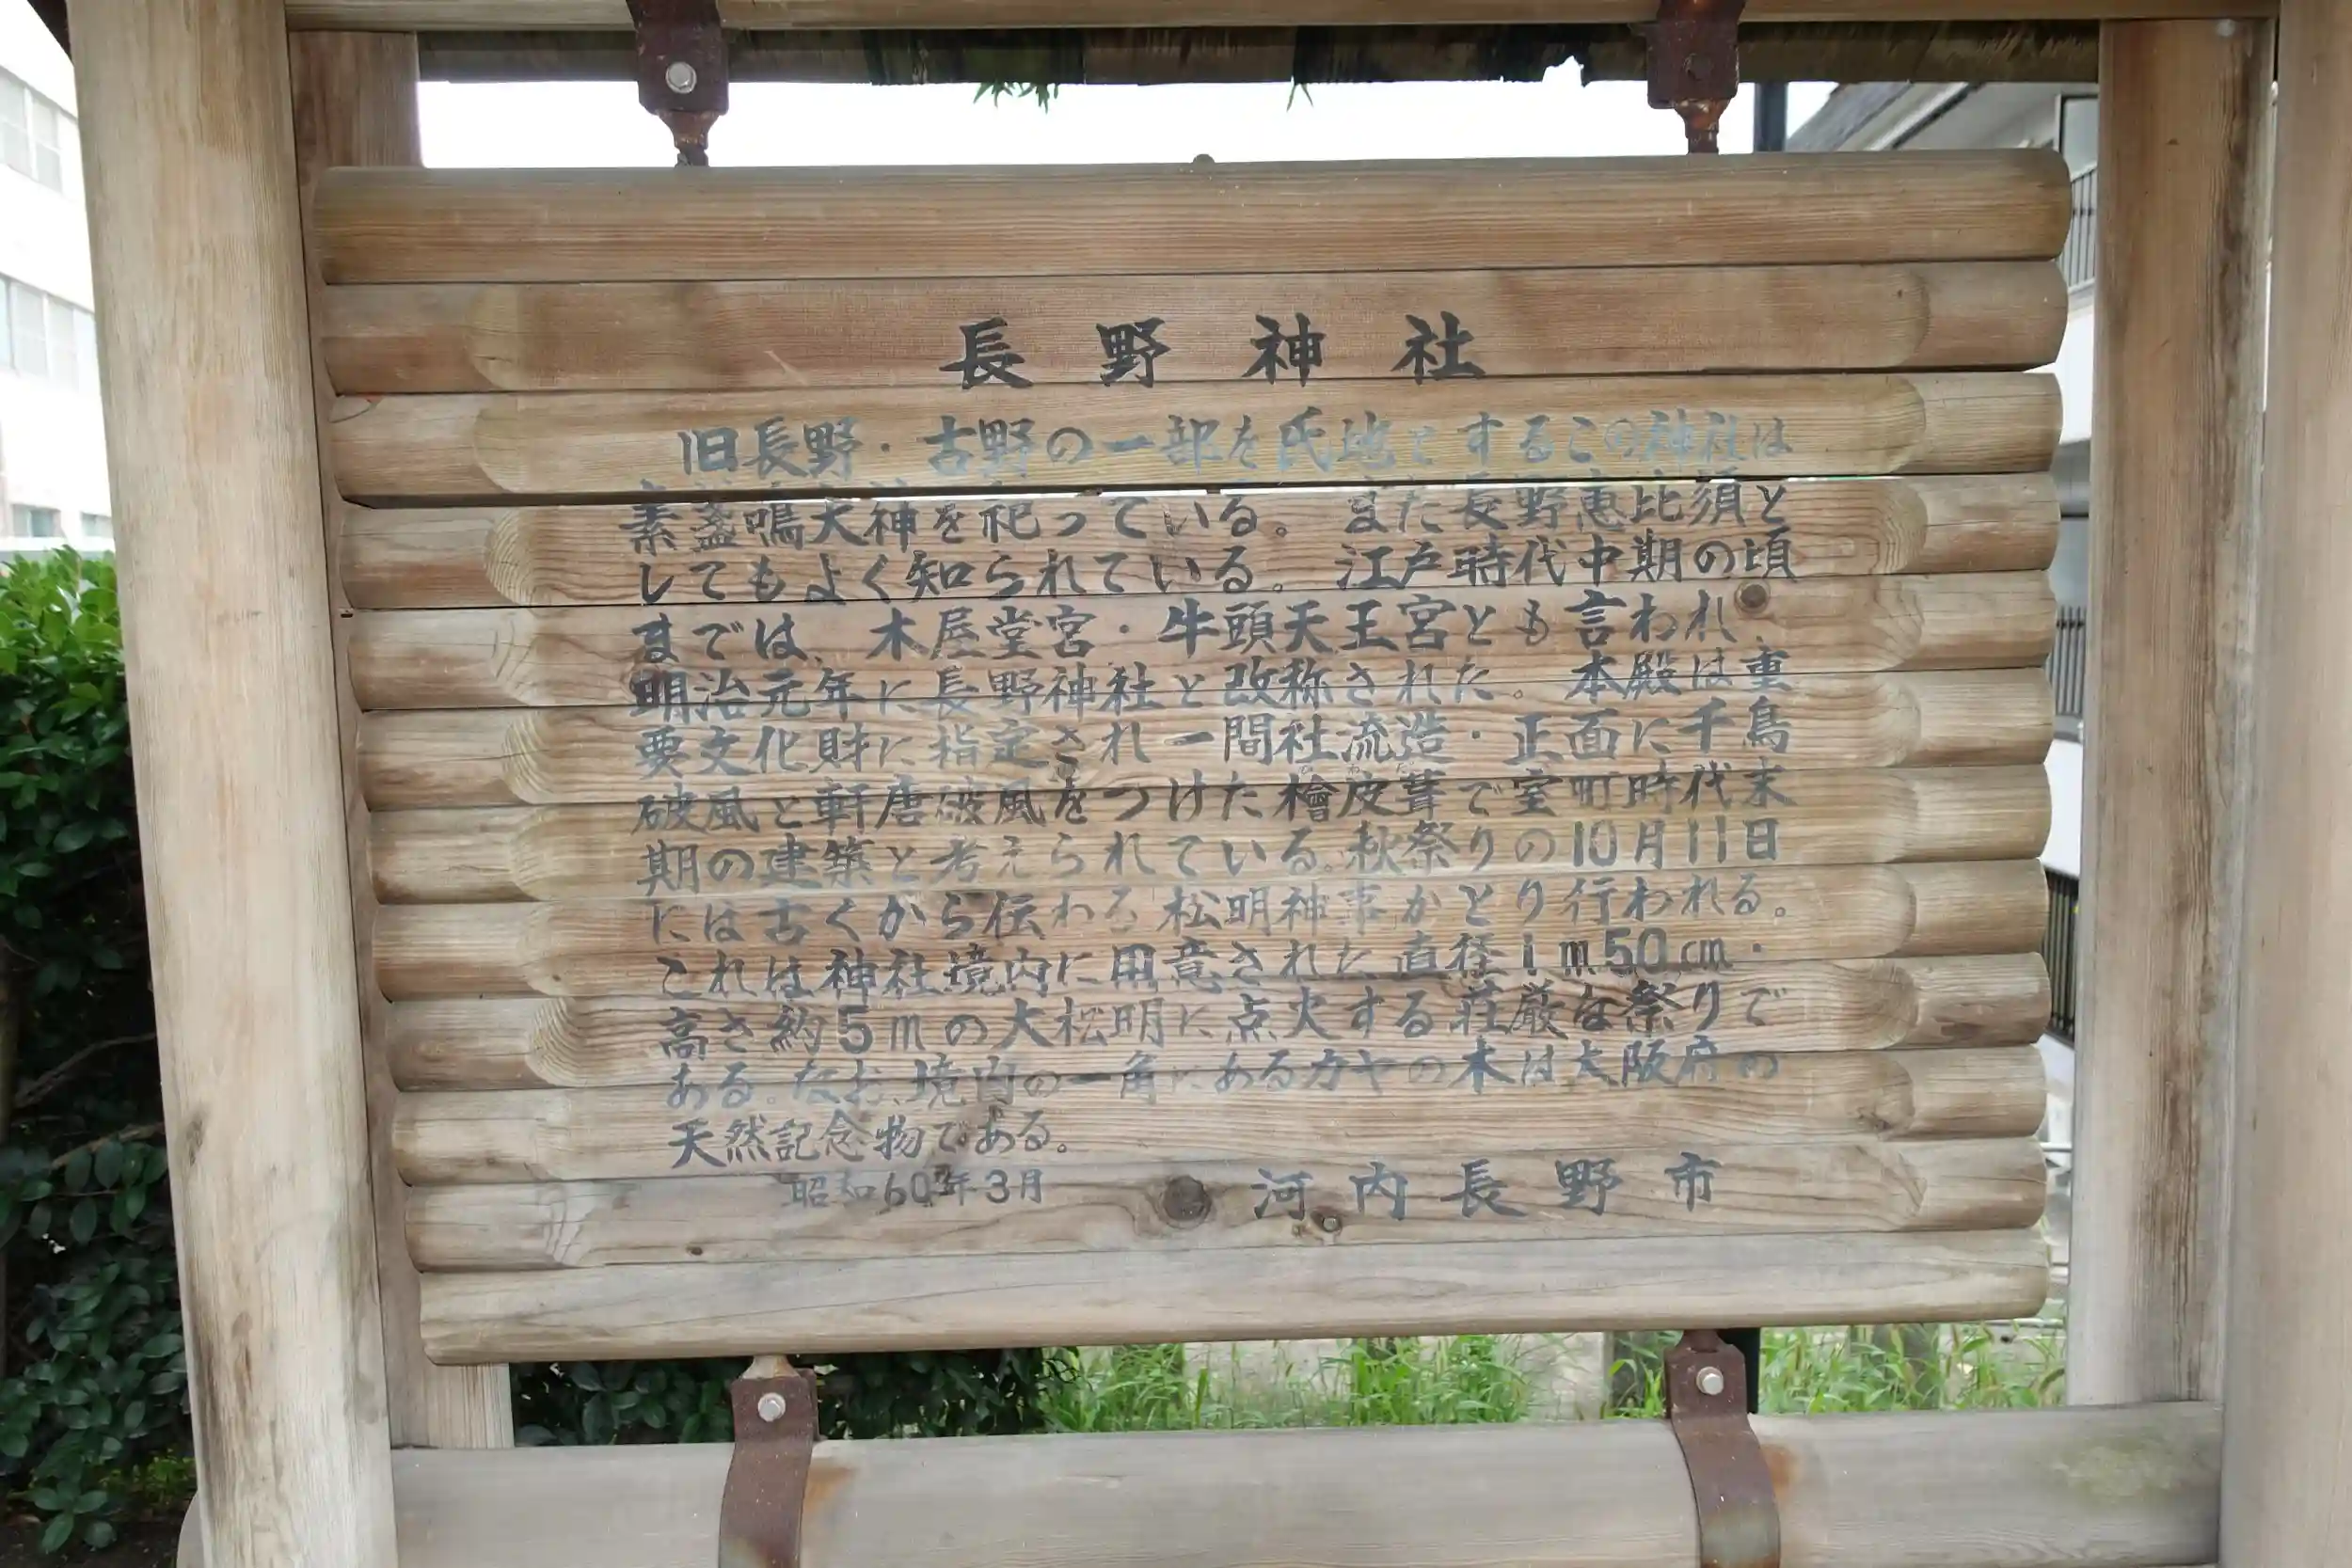 長野神社
旧長野・古野の一部を氏地とするこの神社は
素盞嗚大神を祀っている。また長野恵比須と
してもよく知られている。江戸時代中期の頃
までは、木屋堂宮・牛頭天王宮とも言われ、
明治元年に長野神社と改称された。本殿は重
要文化財に指定され一間社流造・正面に千鳥
破風と軒唐破風をつけた檜皮葺で室町時代末
期の建築と考えられている。秋祭りの10月11日
には古くから伝わる松明神事がとり行われる。
これは神社境内に用意された直径1m50cm・
高さ約5mの大松明に点火する荘厳な祭りで
ある。なお、境内の一角にあるカヤの木は大阪府の
天然記念物である。
昭和60年3月 河内長野市